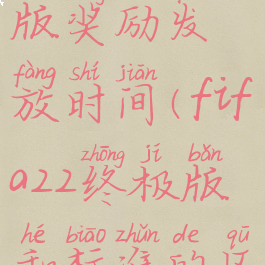 版奖励发
fàng shí jiān
放时间(fif
zhōng jí bǎn
a22终极版
hé biāo zhǔn de qū
和标准的区